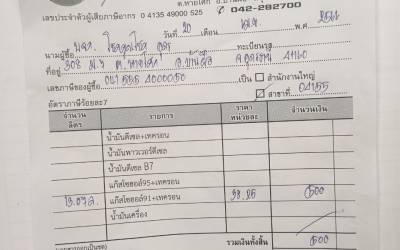 ต.หายโศก อ.บ้านผือ
เลขประจำตัวผู้เสียภาษีอากร 0 4135 49000 525 042-282700
วันที่ 20 เดือน พ.ศ. 2561
นามผู้ซื้อ ทะเบียนรถ
ที่อยู่ 308 ม.4 ต.หายโศก อ.บ้านผือ จ.อุดรธานี 41160
เลขภาษีของผู้ซื้อ เป็น สำนักงานใหญ่
อัตราภาษีร้อยละ7 สาขาที่ 04155
จำนวน ลิตร รายการ ราคา หน่วยละ จำนวนเงิน
น้ำมันดีเซล+เทครอน
น้ำมันพาวเวอร์ดีเซล
น้ำมันดีเซล B7
แก๊สโซฮอล์95+เทครอน
13.072 แก๊สโซฮอล์91+เทครอน 38.25 500
น้ำมันเครื่อง
รวมเงินทั้งสิ้น 500